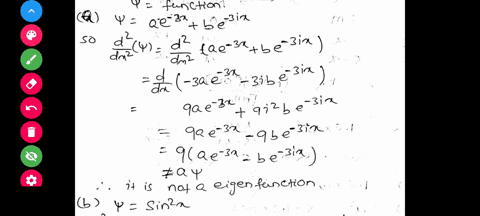 Ψ = function.
(a) Ψ = ae^-3x + be^-3ix
so d²/dx² (Ψ) = d²/dx² (ae^-3x + be^-3ix)
= d/dx (-3ae^-3x - 3ibe^-3ix)
= 9ae^-3x + 9i²be^-3ix
= 9ae^-3x - 9be^-3ix
= 9(ae^-3x - be^-3ix)
≠ aΨ
∴ it is not a eigenfunction.
(b) Ψ = Sin²x